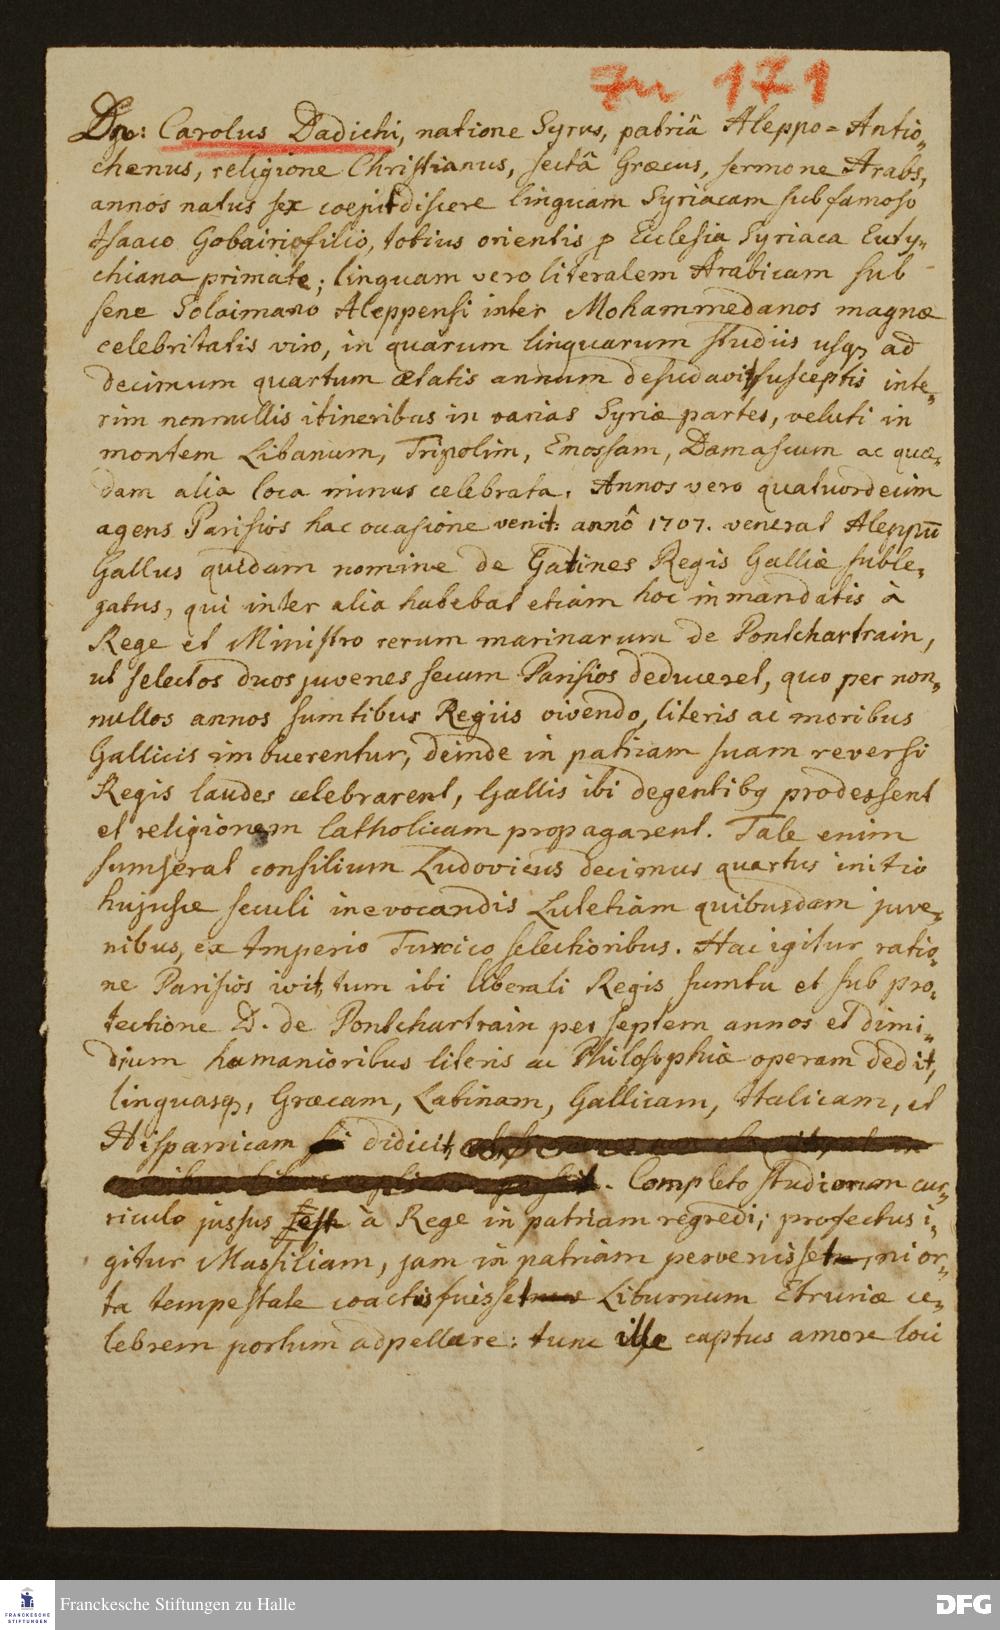 Zu 171
Dn: Carolus Dadichi, natione Syrus, patriâ Aleppo=Antio-
chenus, religione Christianus, sectâ Græcus, sermone Arabs,
annos natus sex coepit discere linguam Syriacam sub famoso
Isaaco Gobairi filio, totius orientis p Ecclesia Syriaca Euty-
chiana primate; linguam vero literalem Arabicam sub
sene Solaimano Aleppensi inter Mohammedanos magnæ
celebritatis viro, in quarum linguarum studiis usq ad
decimum quartum ætatis annum desudavit susceptis inte-
rim nonnullis itineribus in varias Syriæ partes, veluti in
montem Libanum, Tripolim, Emossam, Damascum ac quæ-
dam alia loca minus celebrata. Annos vero quatuordecim
agens Parisios hac occasione venit: annô 1707. venerat Aleppū
Gallus quidam nomine de Gatines Regis Galliæ suble-
gatus, qui inter alia habebat etiam hoc in mandatis à
Rege et Ministro rerum marinarum de Pontchartrain,
ut selectos duos juvenes secum Parisios deduceret, quo per non-
nullos annos sumtibus Regiis vivendo, literis ac moribus
Gallicis imbuerentur, deinde in patriam suam reversi
Regis laudes celebrarent, Gallis ibi degentibq prodessent
et religionem Catholicam propagarent. Tale enim
sumserat consilium Ludovicus decimus quartus initio
hujusce seculi in evocandis Lutetiam quibusdam juve-
nibus, ex Imperio Turcico selectioribus. Hac igitur ratio-
ne Parisios ivit, tum ibi liberali Regis sumtu et sub pro-
tectione D. de Pontchartrain per septem annos et dimi-
dium humanioribus literis ac Philosophiæ operam dedit,
linguasq, Græcam, Latinam, Gallicam, Italicam, et
Hispanicam didicit,
Completo studiorum cur-
riculo jussus est à Rege in patriam regredi; profectus i-
gitur Massiliam, jam in patriam pervenisset, ni or-
ta tempestate coactus fuisset Liburnum Etruriæ ce-
lebrem portum adpellere: tunc ille captus amore loci
Franckesche Stiftungen zu Halle
FRANCKESCHE
STIFTUNGEN
DFG